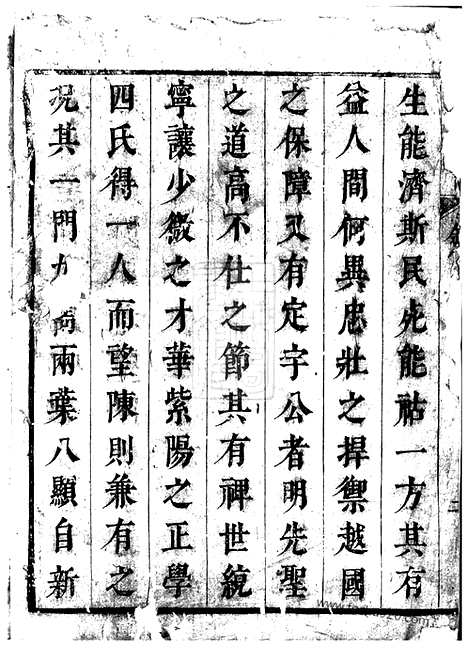 生能濟斯民死能祜一方其有
益人間何異忠壯之捍禦越國
之保障又有定宇公者明先聖
之道高不仕之節其有裨世統
寧讓少微之才華紫陽之正學
四氏得一人而望陳則兼有之
況其一門九尚兩葉八顯自新